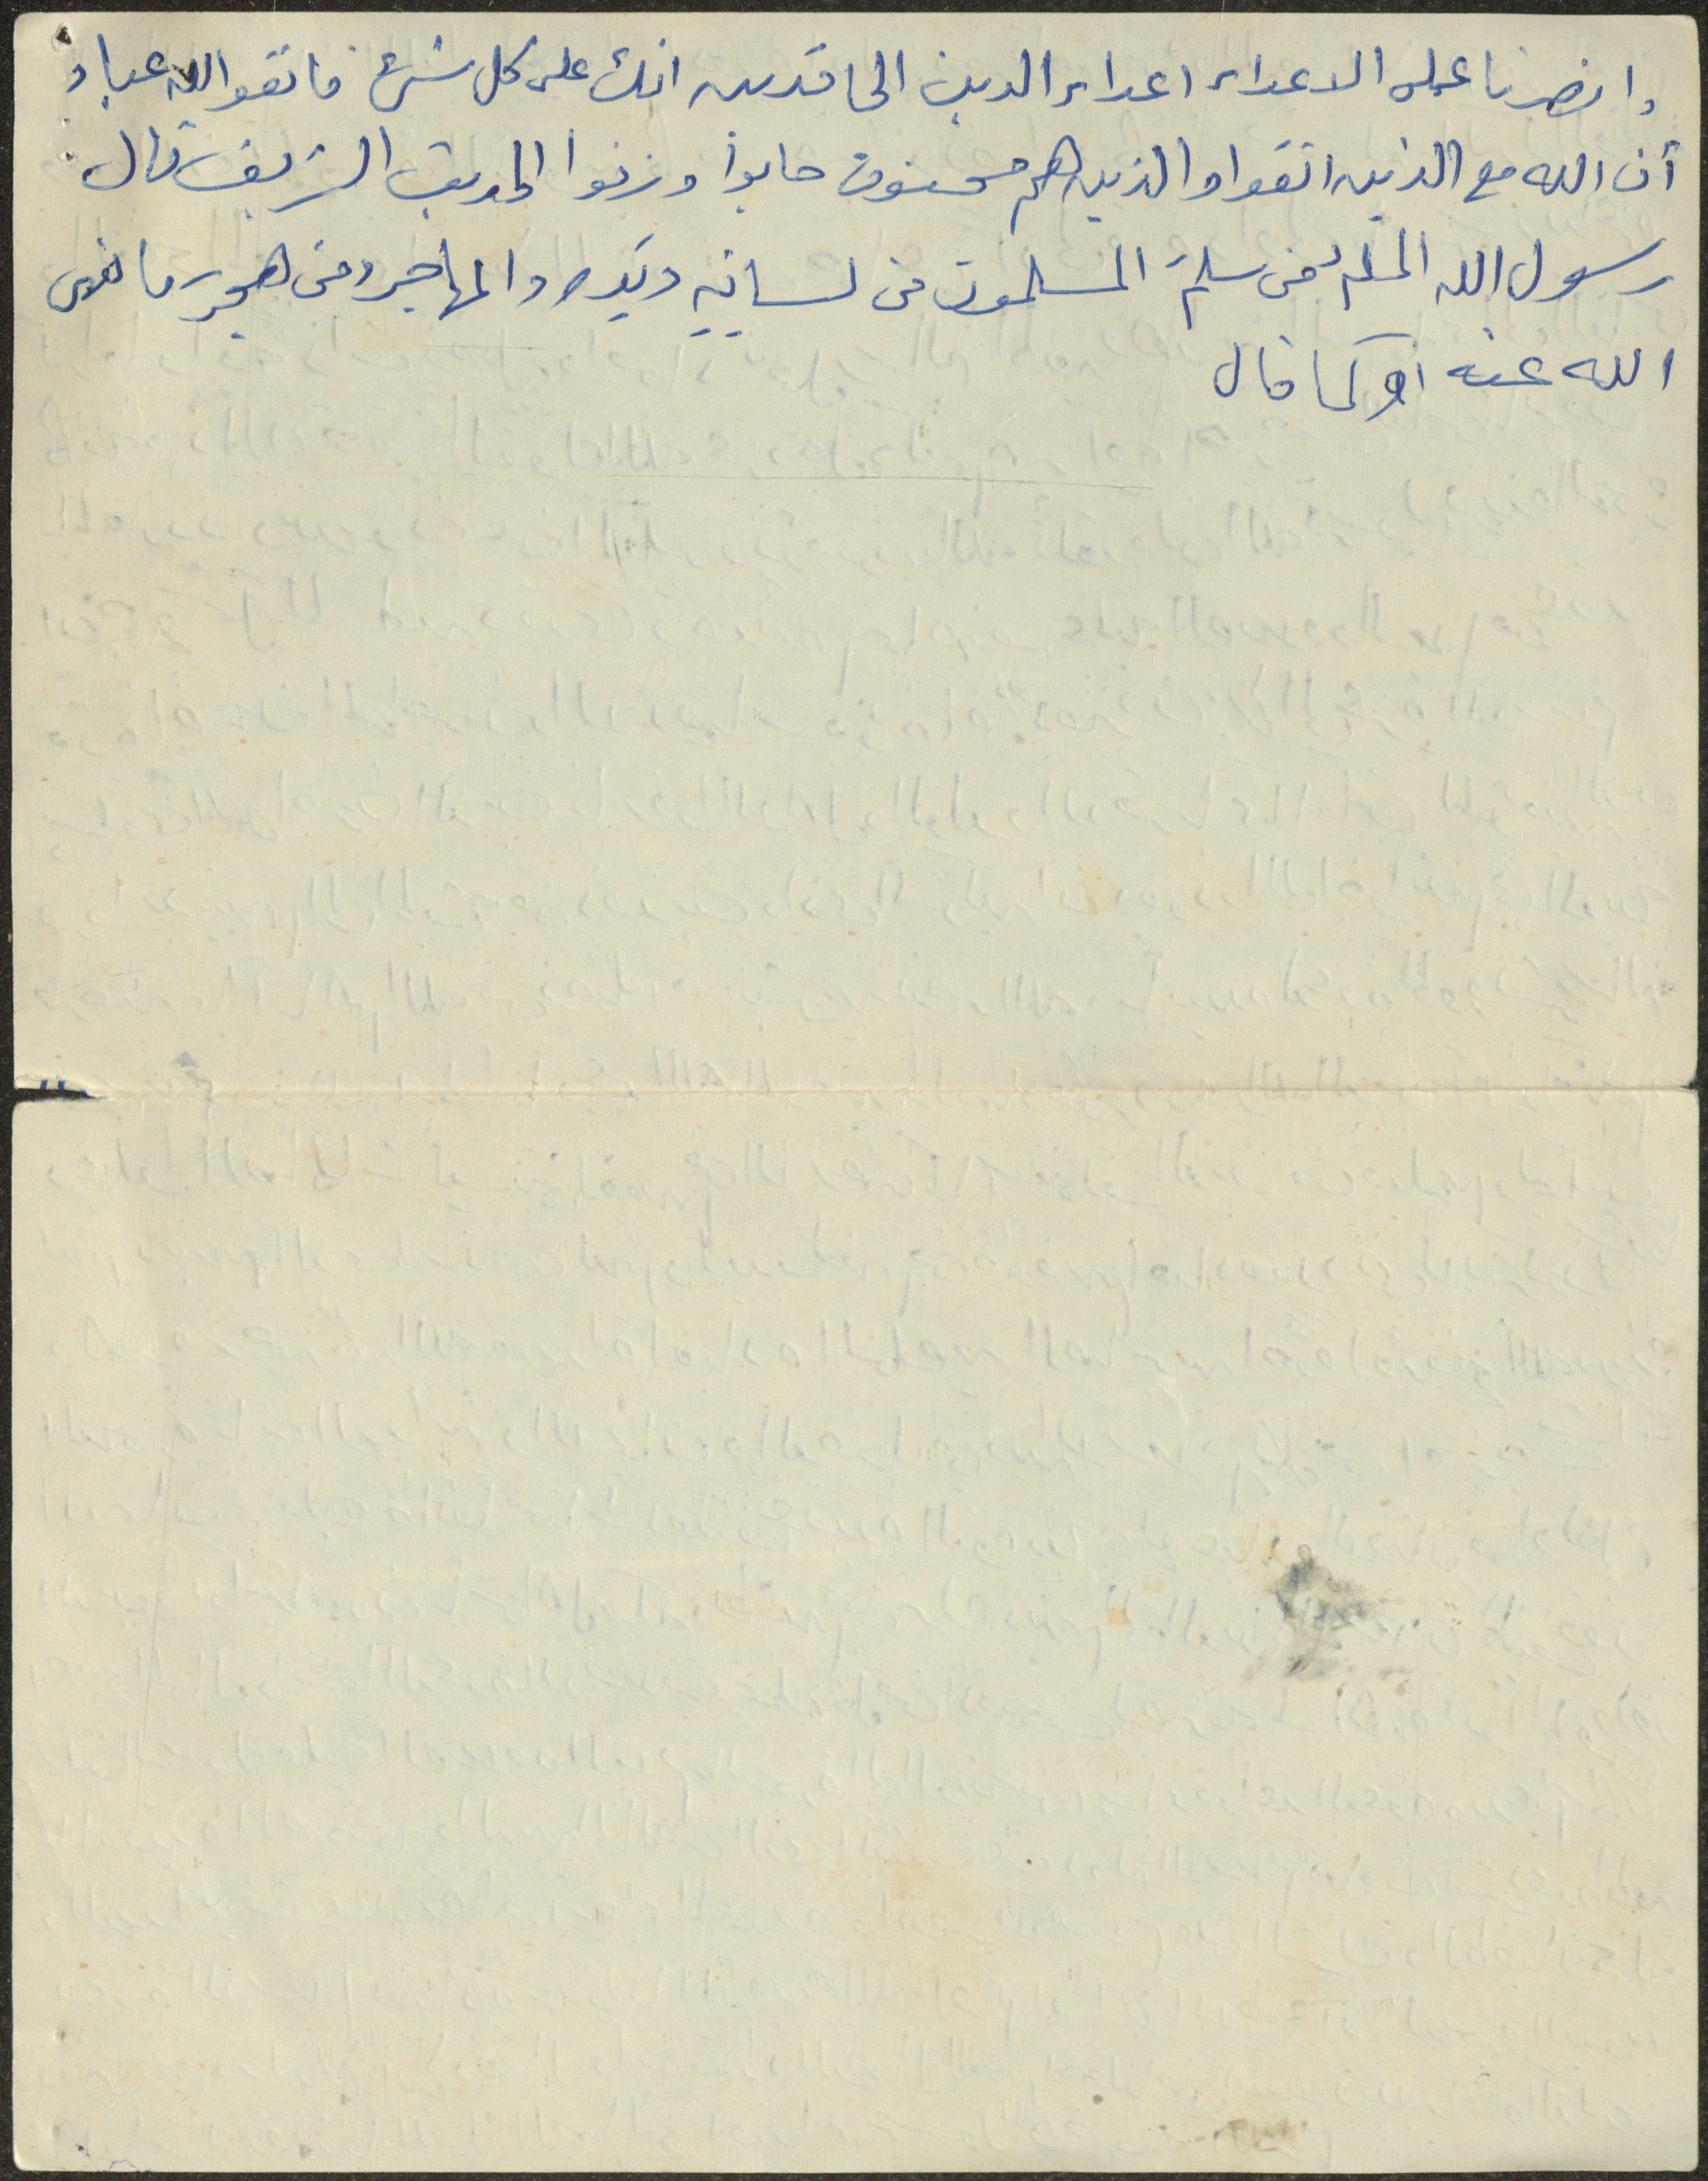 وانصرنا على الاعداء اعداء الدين الحاقدين انك على كل شئ فاتقوا الله عباد
أن الله مع الذين اتقوا والذين هم محسنون جاء وا وزنوا الحديث الشريف قال
رسول الله المسلمُ من سلمَ المسلمون من لسانِهِ ويَدِه والمهاجر من هجر ما نهى
الله عنه أو كما قال